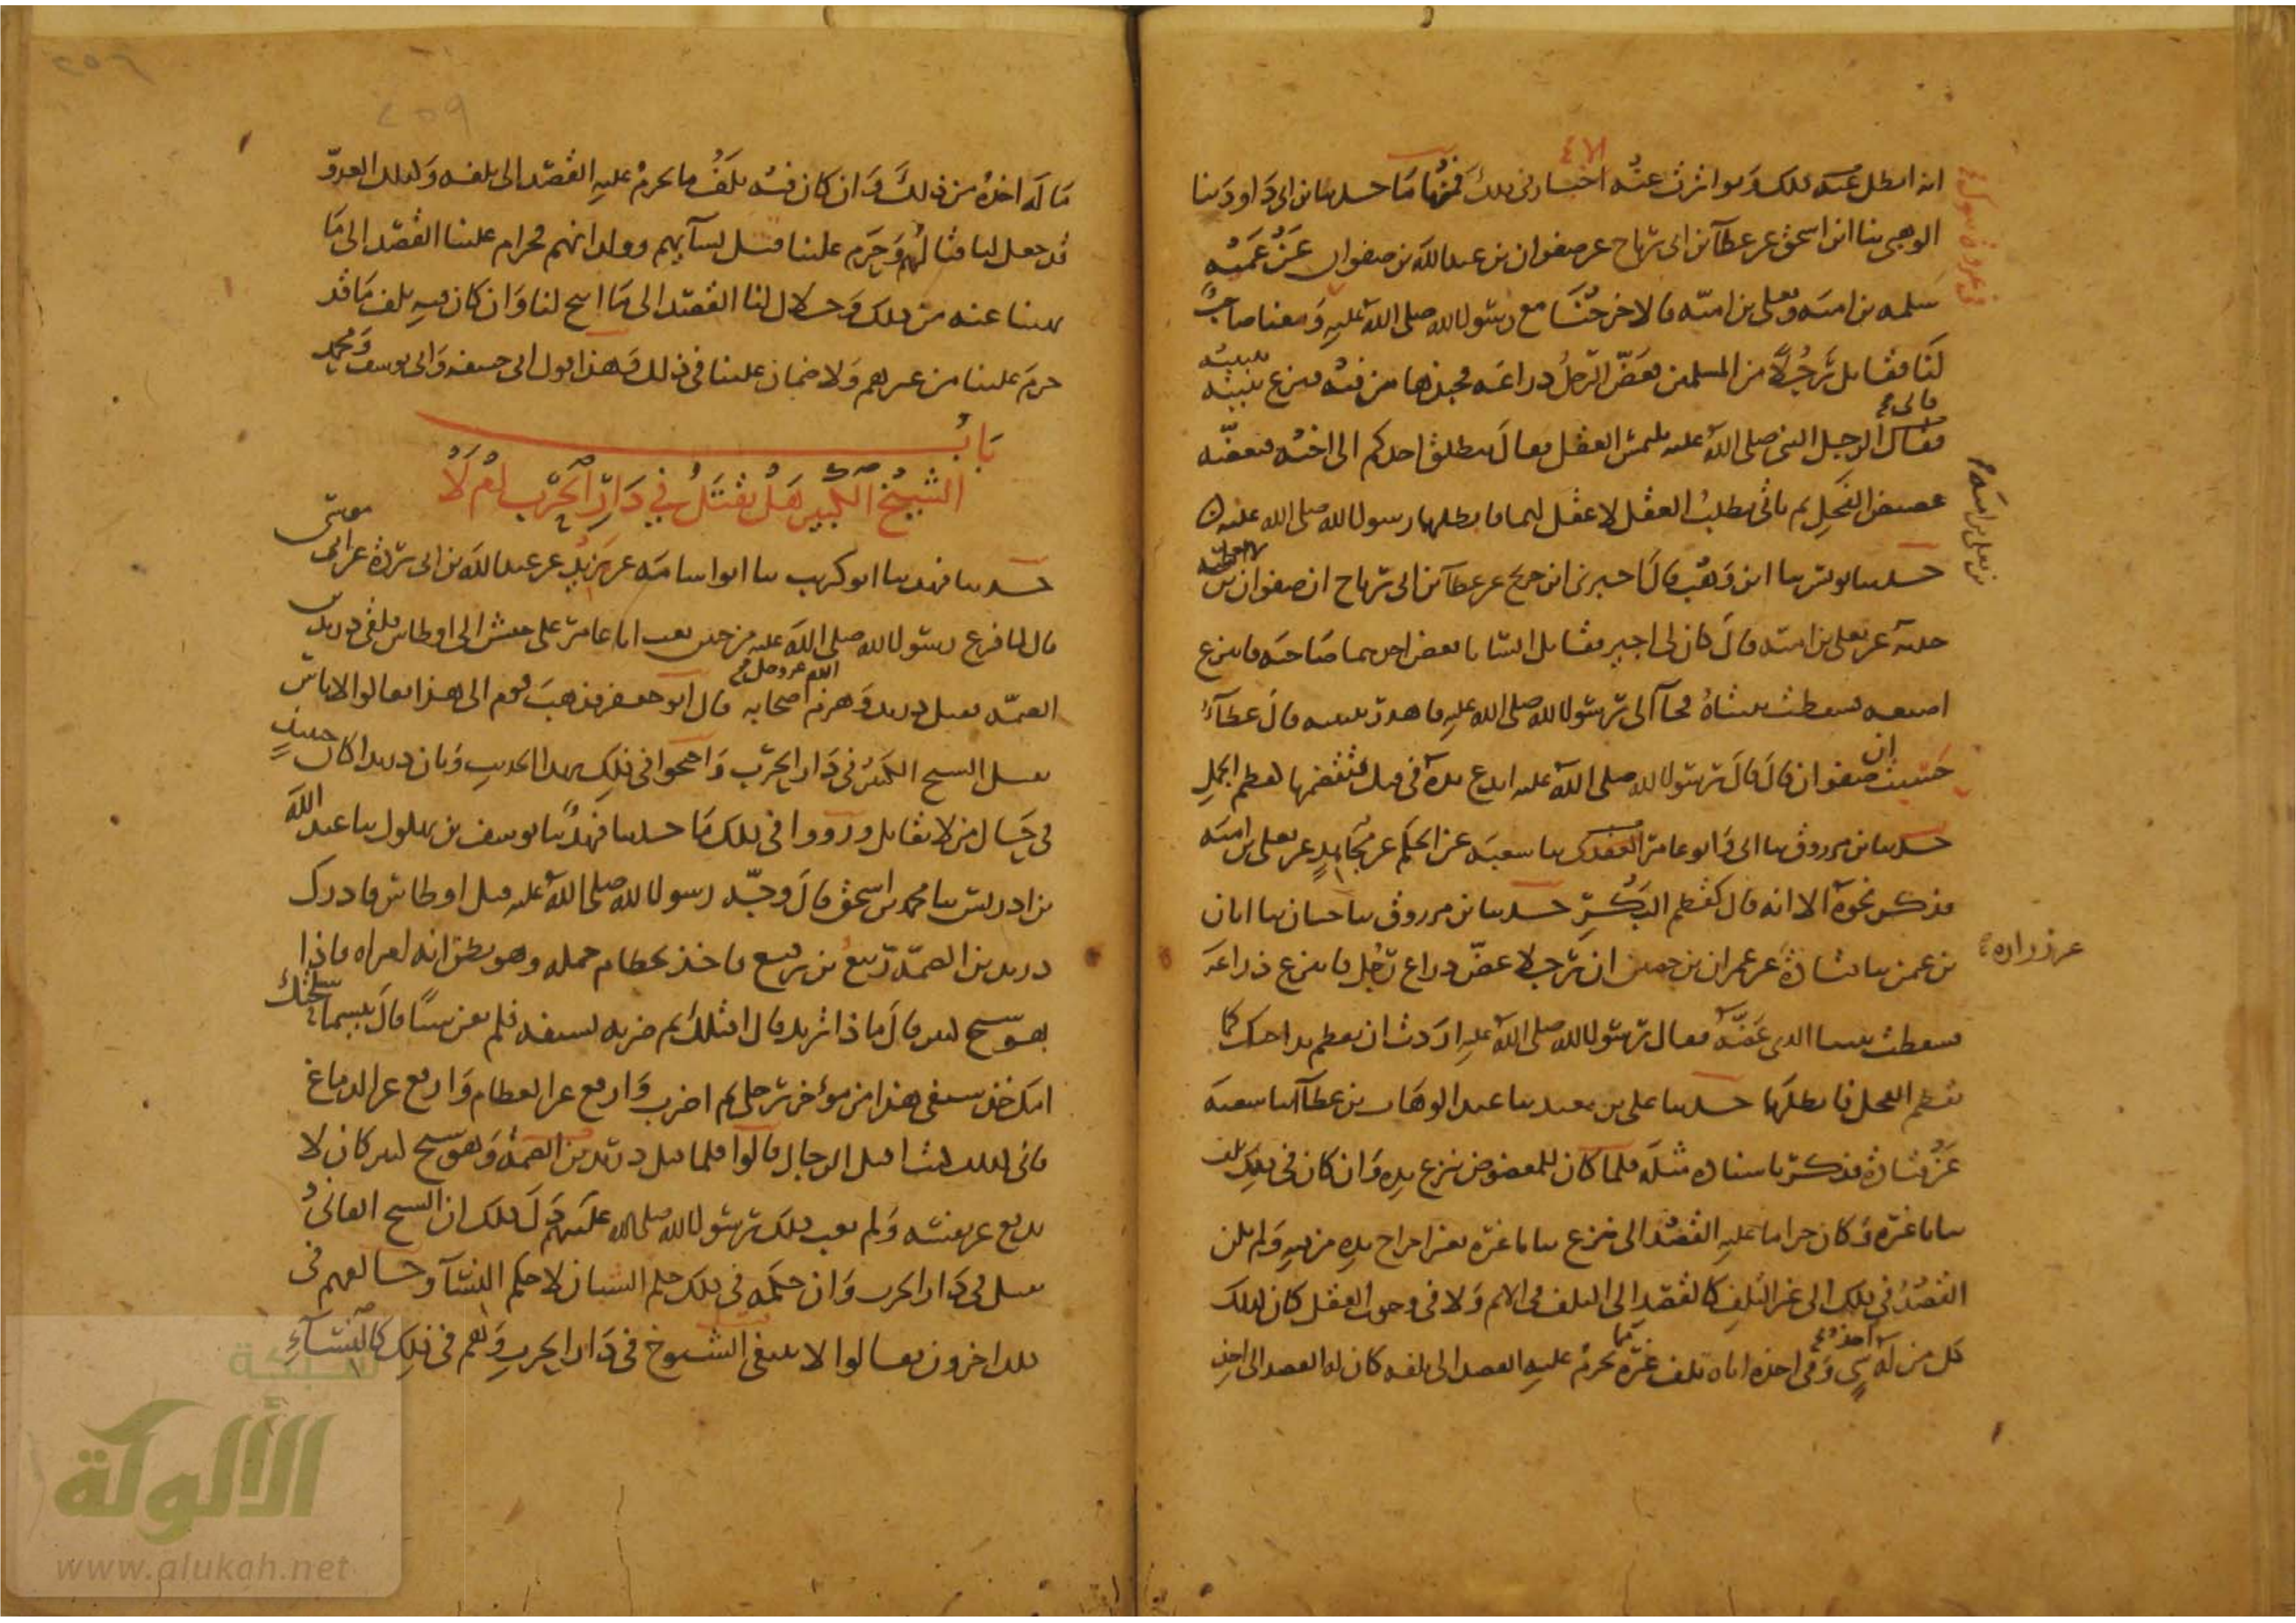 انه ابطل عنه ذلك وتواترت عنه الاخبار في ذلك فمنها ما حدثنا ابن ابي داود ثنا
الوهبي ثنا ابن اسحق عن عطاء بن ابي رباح عن صفوان بن عبد الله بن صفوان عن عميه
سلمه بن اميه ويعلى بن اميه قالا خرجنا مع رسول الله صلى الله عليه ومعنا صاحب
لنا فقاتل رجلا من المسلمين فعض الرجل ذراعه فجبذها من فيه فنزع ثنيته
فقال الرجل النبي صلى الله عليه يلتمس العقل فقال ينطلق احدكم الى اخيه فيعضه
عضيض الفحل ثم ياتي يطلب العقل لا عقل لهما فابطلها رسول الله صلى الله عليه
حدثنا يونس ثنا ابن وهب قال اخبرني ابن جريج عن عطاء بن ابي رباح ان صفوان بن
حدثه عن يعلى بن اميه قال كان لي اجير فقاتل انسانا فعض احدهما صاحبه فانتزع
اصبعه فسقطت ثنيتاه فجاء الى رسول الله صلى الله عليه فاهدر ثنيته قال عطاء
حسبت ان صفوان قال قال رسول الله صلى الله عليه ايدع يده في فيك فتقضمها كقضم الجمل
حدثنا ابن مرزوق ثنا ابي وابو عامر العقدي ثنا شعبه عن الحكم عن مجاهد عن يعلى بن اميه
فذكر نحوه الا انه قال كقضم البكر حدثنا ابن مرزوق ثنا حبان ثنا ابان
عن زراره
بن عمن ثنا قتاده عن عمران بن حصين ان رجلا عض ذراع رجل فانتزع ذراعه
فسقطت ثنيتا الذي عضه فقال رسول الله صلى الله عليه اردت ان تقضم يد اخيك كما
تقضم الفحل فابطلها حدثنا علي بن معبد ثنا عبد الوهاب بن عطاء انا سعيد
عن قتاده فذكر باسناده مثله فلما كان للمعضوض نزع يده وان كان في ذلك تلف
ثنايا غيره وكان حراما عليه القصد الى نزع ثنايا غيره بغير اخراج يده من فيه ولم يكن
القصد في ذلك الى غير التلف كالقصد الى التلف في الاثم ولا في وجوب العقل كان كذلك
كل من له اخذ شي وفي اخذه اياه تلف غيره مما يحرم عليه القصد الى تلفه كان له القصد الى اخذ
ما له اخذه من ذلك وان كان فيه تلف ما يحرم عليه القصد الى تلفه وكذلك العدو
قد جعل لنا قتالهم وحرم علينا قتل نسايهم وولدانهم فحرام علينا القصد الى ما
نهينا عنه من ذلك وحلال لنا القصد الى ما ابيح لنا وان كان فيه تلف ما قد
حرم علينا من غيرهم ولا ضمان علينا في ذلك وهذا قول ابي حنيفه وابي يوسف ومحمد
باب
الشيخ الكبير هل يقتل في دار الحرب ام لا
حدثنا فهد ثنا ابو كريب ثنا ابو اسامه عن بريد عن عبد الله بن ابي برده عن ابي موسى
قال لما فرغ رسول الله صلى الله عليه من حنين بعث ابا عامر على جيش الى اوطاس فلقي دريد بن
الصمه فقتل دريد وهزم الله عز وجل اصحابه قال ابو جعفر فذهب قوم الى هذا فقالوا لا باس
بقتل الشيخ الكبير في دار الحرب واحتجوا في ذلك بهذا الحديث وبان دريدا كان حينئذ
في حال من لا يقاتل ورووا في ذلك ما حدثنا فهد ثنا يوسف بن بهلول ثنا عبد الله
بن ادريس ثنا محمد بن اسحق قال وجه رسول الله صلى الله عليه قبل اوطاس فادرك
دريد بن الصمه ربيع بن رفيع فاخذ بخطام جمله وهو يظن انه امراه فاذا
هو شيخ كبير قال ماذا تريد قال اقتلك ثم ضربه بسيفه فلم يغن شيئا قال بيسما سلحتك
امك خذ سيفي هذا من موخر رحلي ثم اضرب وارفع عن العظام وارفع عن الدماغ
فاني كذلك كنت اقتل الرجال قالوا فلما قتل دريد بن الصمه وهو شيخ كبير كان لا
يدفع عن نفسه ولم يعب ذلك رسول الله صلى الله عليهم دل ذلك ان الشيخ الفاني
يقتل في دار الحرب وان حكمه في ذلك حكم الشبان لا حكم النسا وخالفهم في
ذلك اخرون فقالوا لا ينبغي قتل الشيوخ في دار الحرب وهم في ذلك كالنساء
شبكة
الألوكة
www.alukah.net